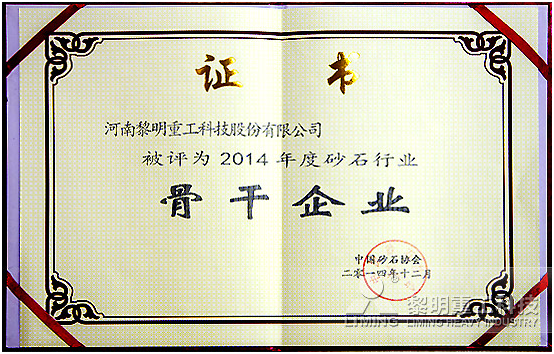 证书
河南黎明重工科技股份有限公司
被评为2014年度砂石行业
骨干企业
中国砂石协会
二零一四年十二月
黎明重工科技
LIMING LIMING HEAVY INDUSTRY